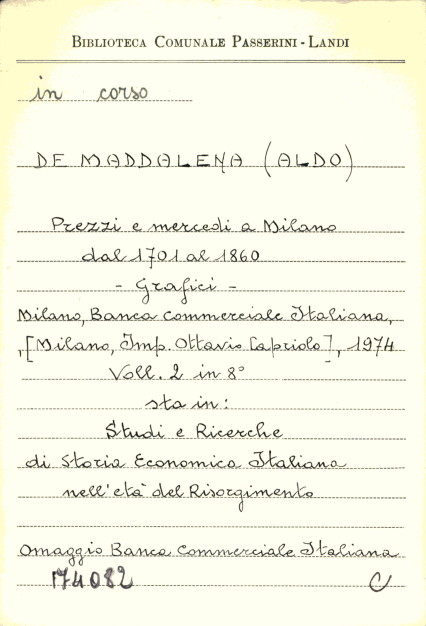 BIBLIOTECA COMUNALE PASSERINI - LANDI
in corso
DE MADDALENA (ALDO)
Prezzi e mercedi a Milano
dal 1701 al 1860
- Grafici -
Milano, Banca Commerciale Italiana,
,[Milano, Imp. Ottavio Capriolo], 1974
Voll. 2 in 8°
sta in:
Studi e Ricerche
di Storia Economica Italiana
nell'età del Risorgimento
Omaggio Banca Commerciale Italiana
174082 C